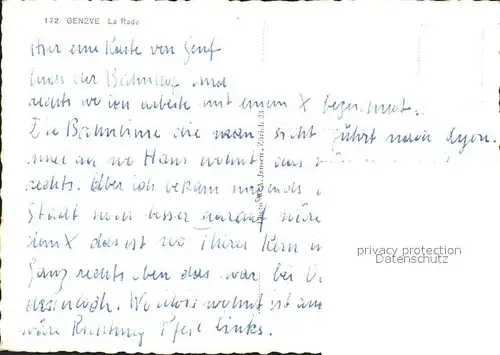 172 GENÈVE La Rade
Hier eine Karte von Genf
links der Bahnhof und
rechts wo ich arbeite mit einem X bezeichnet.
Die Bahnlinie die man sicht führt nach Lyon.
wo Hans wohnt
rechts. Aber ich bekam nirgends
Stadt noch besser darauf wäre
dem X das ist wo Theres Kern
Ganz rechts oben das war bei
wohnt ist
wäre Richtung Pfeil links.
Hugo Jansen, Zürich 31
privacy protection
Datenschutz